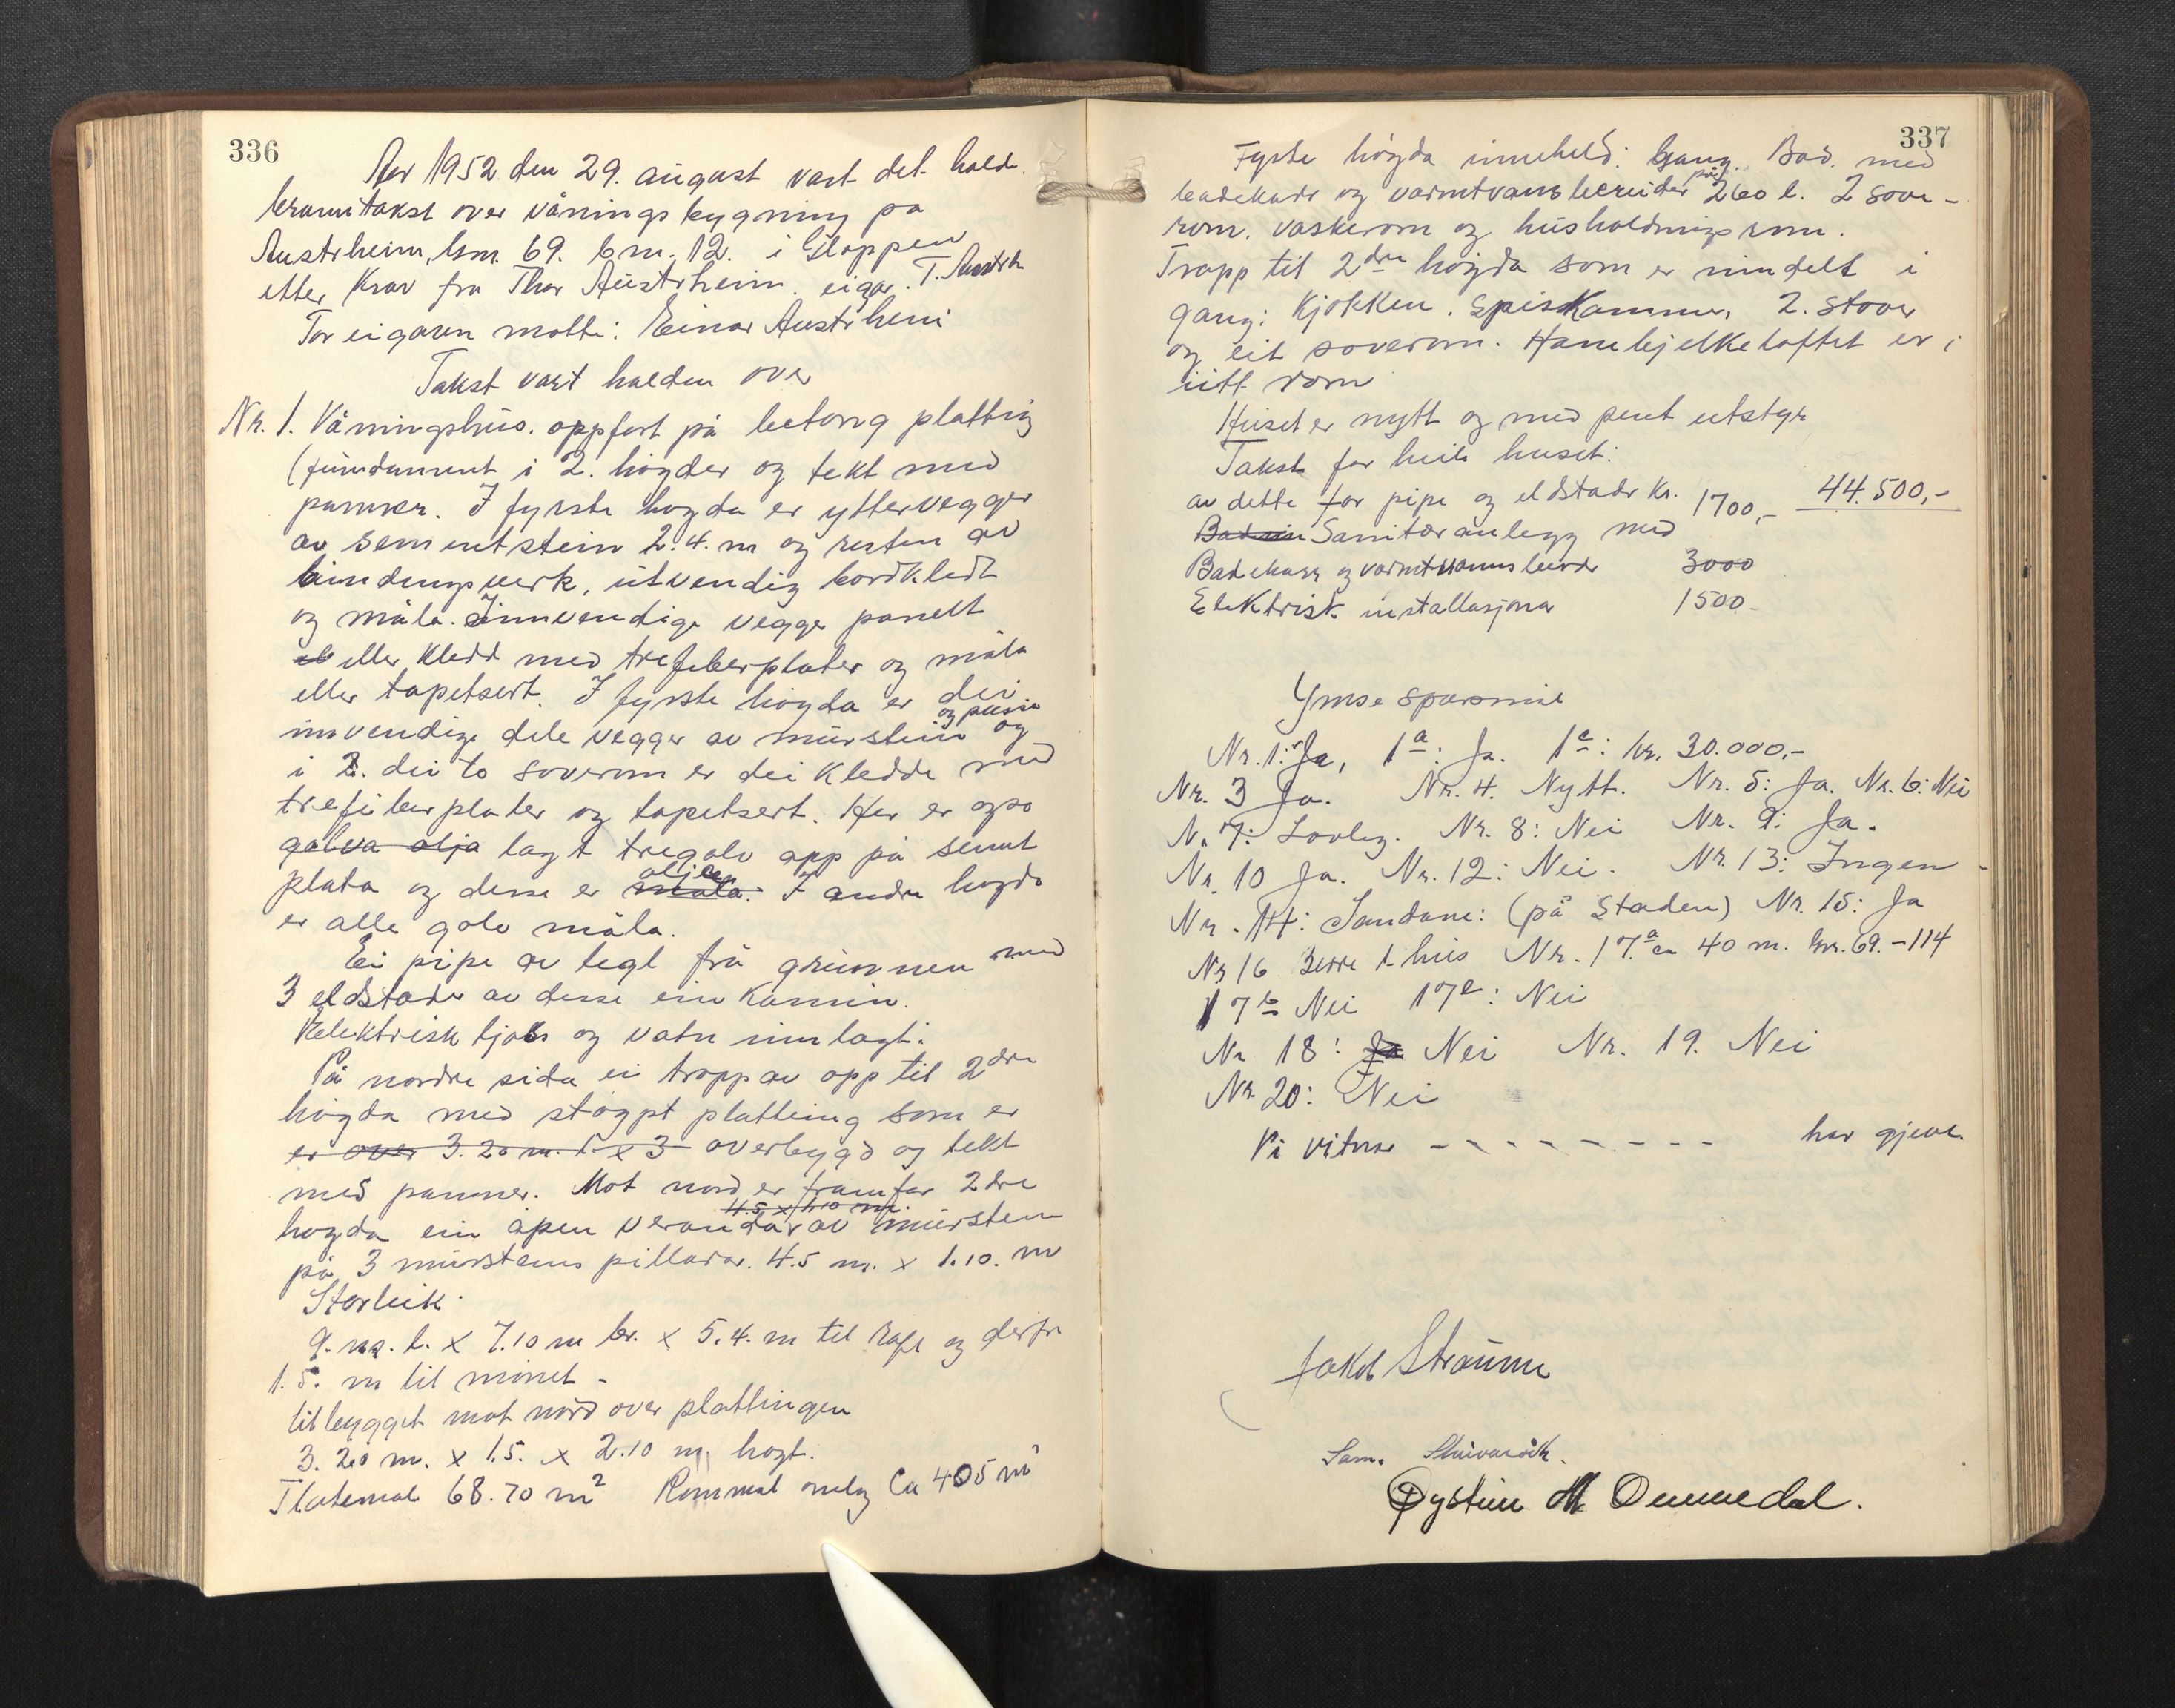 336
Aar 1952 den 29. august vart det halde
branntakst over våningsbygning på
Austrheim, Gnr. 69. bnr. 12. i Gloppen
etter krav fra Thor Austrheim. eigar. T. Austrh
For eigaren møtte: Einar Austrheim
Takst vart halden over
Nr. 1. Våningshus. oppført på betong platting
(fundament i 2. høgder og tekt med
panner. I fyrste høgda er yttervegger
av sementstein 2.4. m og resten av
bindingsverk, utvendig bordkledt
og måla. Innvendige vegger panelt
eller kledd med trefiberplater og måla
eller tapetsert. I fyrste høgda er dei
og pussa
innvendige dele vegger av murstein og
i 2. dei to soverom er dei kledde med
trefiberplater og tapetsert. Her er også
golva olja lagt tregolv opp på sement
oljea
plata og desse er måla. I andre høgda
er alle golv måla.
Ei pipe av tegl frå grunnen med
3 eldstader av desse ein kamin.
Elektrisk ljos og vatn innlagt.
På nordre sida ei tropp av opp til 2dre
høgda med støypt platting som er
er over 3.20 m. l x 3 overbygd og tekt
med panner. Mot nord er framfor 2dre
4.5 x 1.10 m.
høgda ein åpen veranda av murstein
på 3 murstens pillarar. 4.5 m. x 1.10. m
Storleik.
9. m. l. x 7.10 m br. x 5.4. m til raft og derfrå
1.5. m til mønet -
tilbygget mot nord over plattingen
3.20 m. x 1.5. x 2.10 m. høgt.
Flatemål 68.70 m² Rommål omlag Ca 405 m³
337
Fyrste høgda inneheld: Gang. Bad. med
på
badekar og varmtvannsbereider 260 l. 2 sove-
rom. vaskerom og husholdningsrom.
Tropp til 2dre høgda som er inndelt i
gang: Kjøkken. Spiskammer, 2. stover
og eit soverom. Hanebjelkeloftet er i
eitt rom
Huset er nytt og med pent utstyr
Takst for heile huset:
44.500,-
av dette for pipe og eldstader Kr. 1700,-
Sanitæranlegg med
Badekar og varmtvannsbereder 3000
Elektrisk installasjoner 1500-
Ymse spørsmål
Nr. 1: Ja, 1a: Ja. 1c: kr. 30.000.-
Nr. 3 Ja. Nr. 4. Nytt. Nr. 5: Ja. Nr. 6: Nei
N. 7: Lovleg. Nr. 8: Nei Nr. 9: Ja.
Nr. 10 Ja. Nr. 12: Nei. Nr. 13: Ingen -
Nr. 14: Sandane: (på Staden) Nr. 15: Ja
Nr 16 Berre 1 hus Nr. 17.a ca 40 m. Gnr. 69. - 114
17b Nei 17c: Nei
Nr 18: Ja Nei Nr. 19. Nei
Nr. 20: Nei
Vi vitnar - - - - - - - - har gjeve.
Jakob Straume
Øystein M Ommedal.